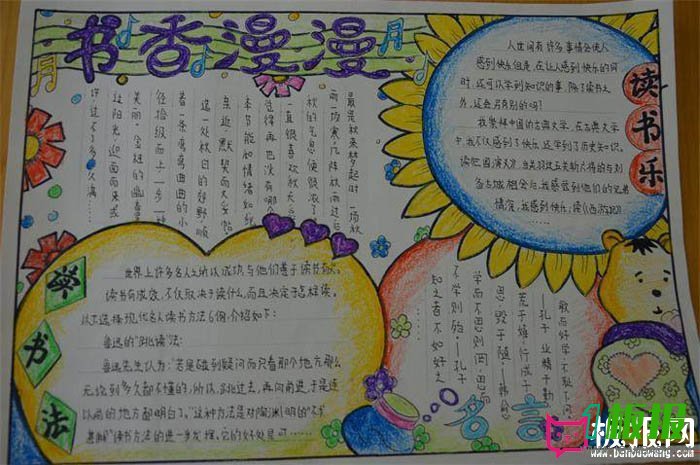 书香漫漫
月
月
最是秋来梦起时,一场秋
雨一场寒,
秋的气息便
一直很喜欢秋天
觉得再也没有哪个
季节能如
亲近,默契而大
这一处秋日的郊野,顺
着一条弯弯曲曲的小
径拾级而上,一步一
美丽,金桂的幽香
过阳光,迎面而来
人世间有许多事情会使人
感到快乐但是,在让人感到快乐的同
时,还可以学到知识的事,除了读书之
外,还会有别的吗?
我崇拜中国的古典文学,在古典文学
中,我不仅感到了快乐,还学到了历史知识。
读《三国演义》,当关羽过五关斩六将的与刘
备古城相会后,我感受到他们的兄弟
情谊,我感到快乐;读《西游记》
读书乐
学书法
世界上许多名人之所以成功,与他们善于读书有关。
读书有成效,不仅取决于读什么,而且决定于怎样读。
以下选择现代名人读书方法6例,介绍如下:
鲁迅的"跳读"法:
鲁迅先生认为:"若是碰到疑问而只看那个地方,那么
无论到多久都不懂的,所以,跳过去,再向前进,于是连
以前的地方都明白了。"这种方法是对陶渊明的"不求
甚解"读书方法的进一步发挥。它的好处是可……
敏而好学,不耻下问
——孔子 业精于勤
荒于嬉,行成于
思,毁于随。——韩愈
学而不思则罔,思而
不学则殆。——孔子
知之者不如好之
名言
板报网
www.banbaowang.com